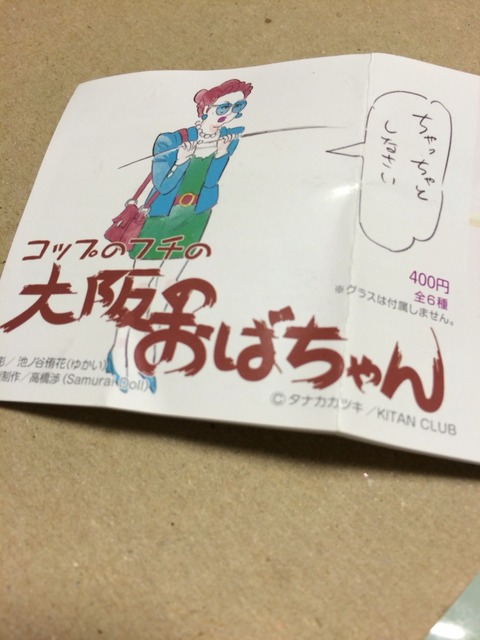 ちゃっちゃと
しなさい
コップのフチの
大阪のおばちゃん
400円
全6種
※グラスは付属しません。
／池ノ谷侑花(ゆかい)
制作／高橋渉(Samurai Doll)
©タナカカツキ／KITAN CLUB